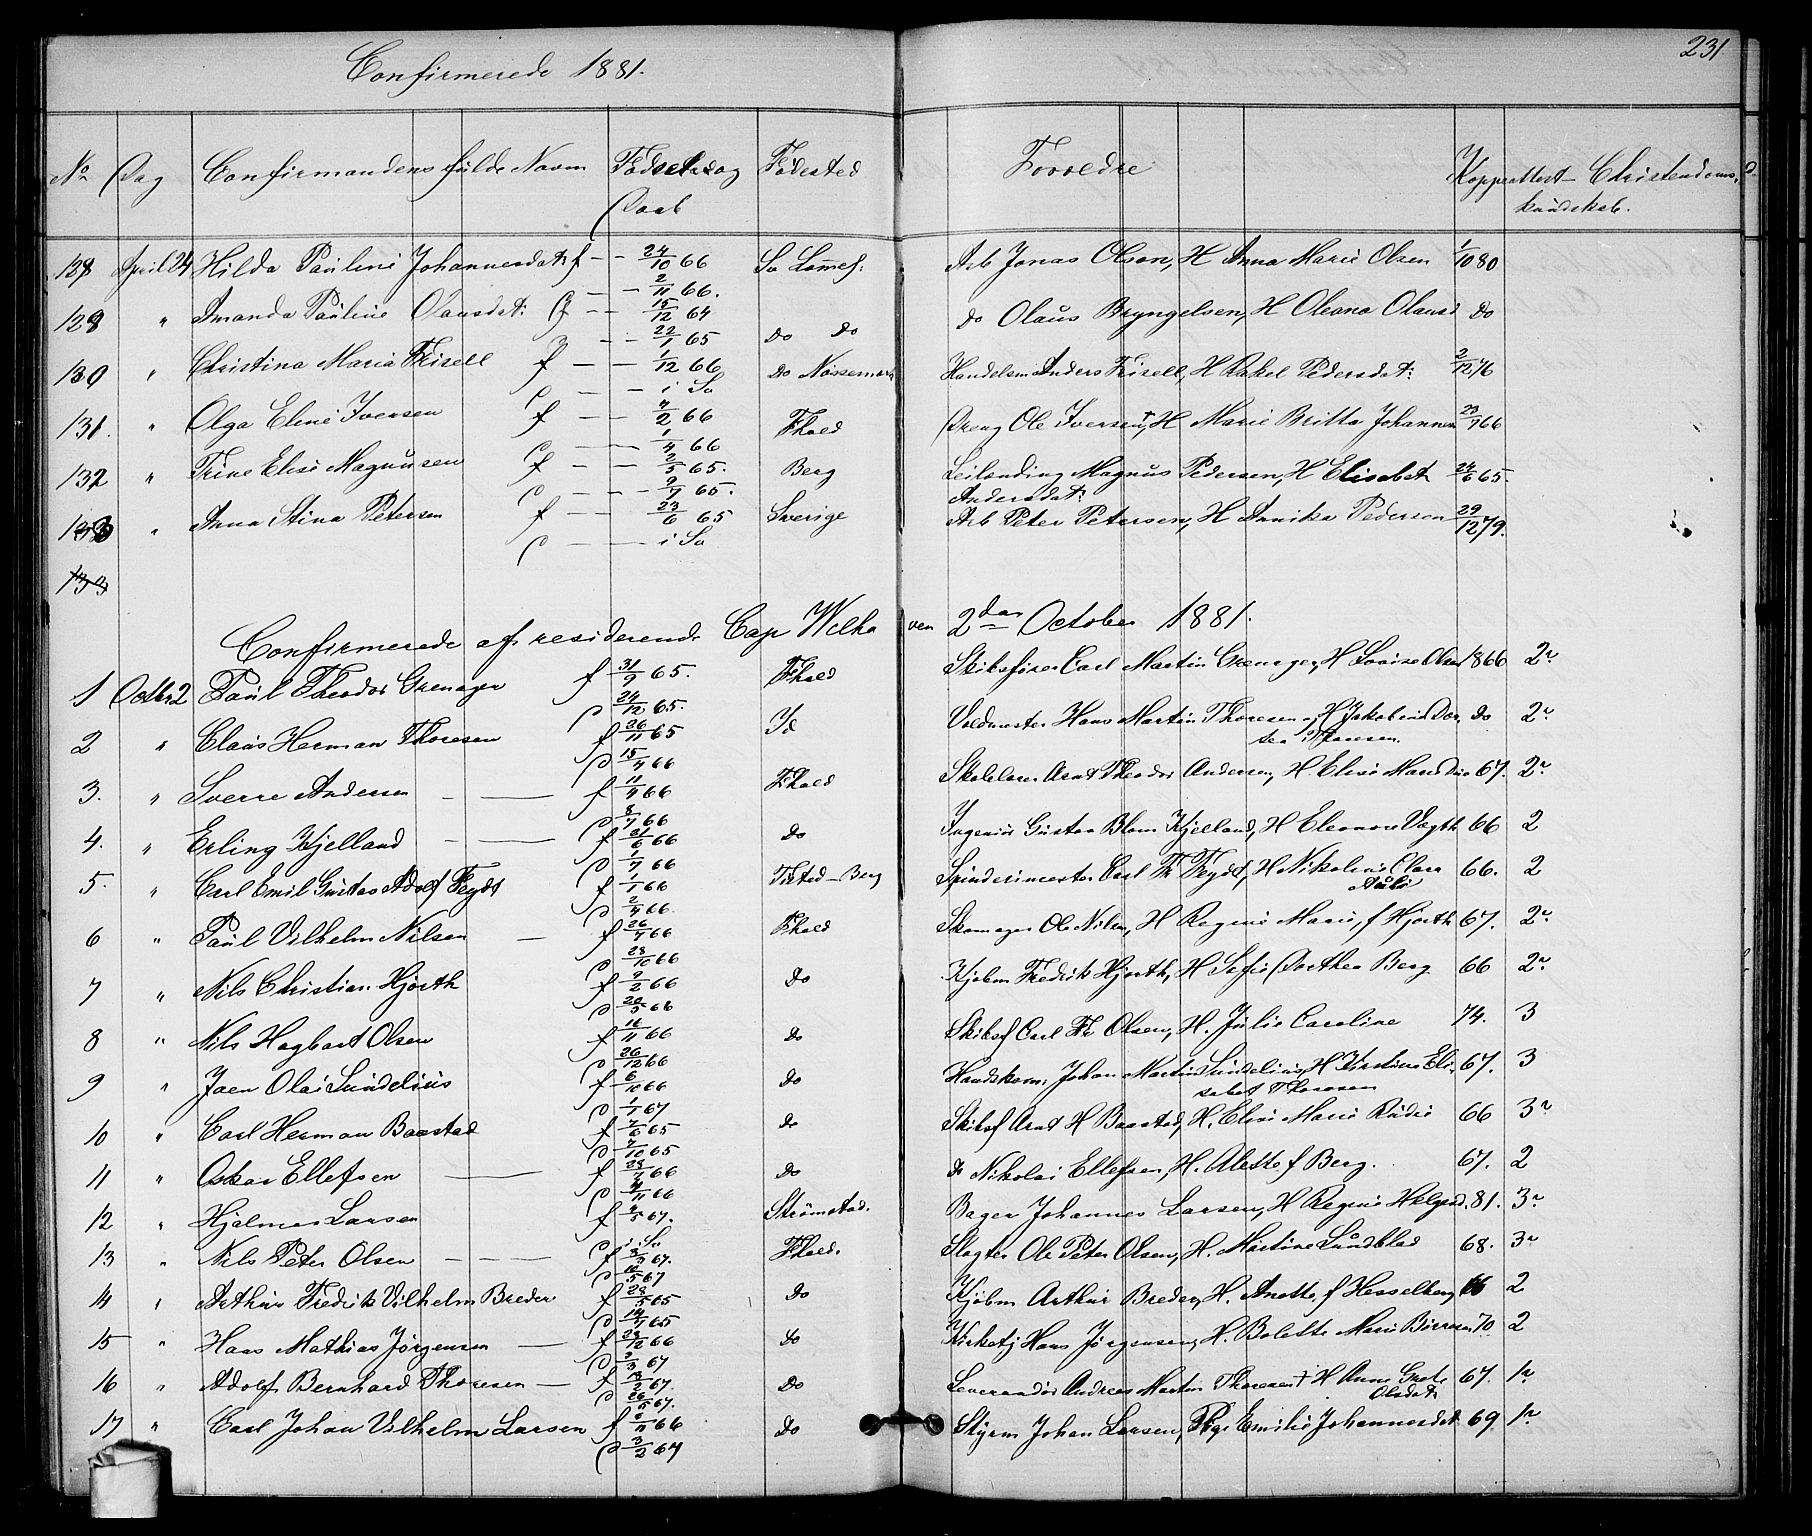 Confirmerede 1881.
231
No Dag Confirmandens fulde Navn Fødselsdag Fødested Forældre Koppeattest Christendoms-
Daab kundskab.
128 April 24 Hilda Pauline Johannesdatr f — 24/10 66 Arb Jonas Olson, H Anna Marie Olsen 1/10 80
2/11 66.
129 " Amanda Pauline Olausdat: f — 15/12 64 do do do Olaus Bryngelsen, H Oleana Olausd do
22/1 65
130 " Christina Maria Frisell f — 1/12 66 do Nössemark Handelsm Anders Frisell, H Rakel Pedersdat: 2/12 76
D — i So
131. " Olga Eline Iversen f — 4/2 66 Fhald Dreng Ole Iversen, H Marie Britta Johannesen 23/7 66
D — 1/4 66
132 " Trine Elise Magnusen f — 2/5 65. Berg Leilænding Magnus Pedersen, H Elisabet 24/6 65.
D — 9/7 65. Andersdat:
133 " Anna Stina Petersen f — 23/6 65 Sverige Arb Peter Petersen, H Annika Pedersen 29/12 79.
D — i So
133
Confirmerede af residerende Cap Wilhaven 2den October 1881.
1 Octbr 2 Paul Theodor Grenager f 31/9 65. Fhald Skibsfører Carl Martin Grenager, H Lovise Olsen 1866 2r
D 24/12 65.
2 " Claus Herman Thoresen f 26/11 65 Id Veidmester Hans Martin Thoresen, H Jakobine Dor. do 2r
D 15/4 66 tea Thoresen.
3. " Sverre Andersen — f 11/4 66 Fhald Skolelærer Arnt Theodor Andersen, H Elise Marie 67. 2r
D 8/7 66
4. " Erling Kjelland — f 21/6 66 do Ingeniør Gustav Blom Kjelland, H Eleonore Vogth 66 2
D 1/7 66
5. " Carl Emil Gustav Adolf Feydt f 1/1 66 Tisted-Berg Spinderimester Carl Th Feydt, H Nikoline Clara 66. 2
D 2/4 66.
6 " Paul Vilhelm Nilsen — f 26/7 66 Fhald Skomager Ole Nilsen, H Regine Marie, f Hjorth 67. 2r
D 28/10 66
7 " Nils Christian Hjorth f 9/2 66 do Kjøbm Fredrik Hjorth, H Sofie Dorthea Berg 66 2r
D 20/5 66
8 " Nils Hagbart Olsen f 16/11 66 do Skibsf Carl Fr Olsen, H. Julie Caroline 74. 3
D 26/12 66
9 " Jaen Olai Sundelius f 6/10 66 do Handskem. Johan Martin Sundelius, H Kirstine Eli- 67. 3
D 1/1 67 sabet Thoresen
10 " Carl Herman Baastad f 7/6 65 do Skibsf Arnt H Baastad, H. Elise Marie Rudie 66 3r
D 7/10 65
11 " Oskar Ellefsen — f 28/7 66 do do Nikolai Ellefsen, H. Alette f Berg. 67. 2
D 4/11 66
12 " Hjalmar Larsen f 2/5 67. Strømstad. Bager Johannes Larsen, H Regine Helgesd. 81. 3r
D i So
13 " Nils Peter Olsen — f 3/3 67. Fhald. Slagter Ole Peter Olsen, H. Martine Sundblad 68. 3r
D 10/5 67
14 " Arthur Fredrik Vilhelm Breder f 28/5 65 do Kjøbm Arthur Breder, H. Anette, f Hesselberg 66 2
D 14/7 65
15 " Hans Mathias Jørgensen — f 28/12 66 do Kirketj Hans Jørgensen, H. Bolette Marie Børresen 70 2
D 3/3 67
16 " Adolf Bernhard Thoresen — f 13/2 67. do Leverandør Andreas Martin Thoresen + H Anne Grete 67. 1r
D 26/5 67. Olsdat:
17 " Carl Johan Vilhelm Larsen f 2/11 66 do Styrm Johan Larsen, Pige Emilie Johannesdat 69. 1r
D 3/2 67